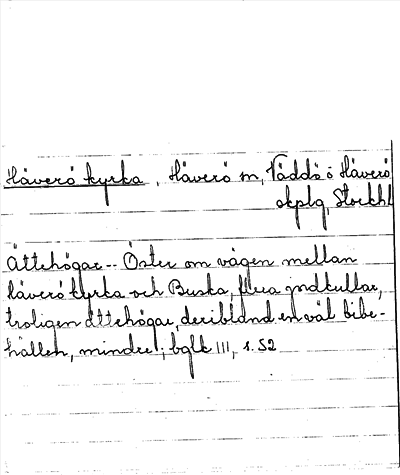 Häverö kyrka, Häverö sn, Väddö o Häverö
skplg, Stockhl
Ättehögar -- Öster om vägen mellan
Häverö kyrka och Buska, flera jordkullar,
troligen ättehögar, deribland en väl bibe-
hållen, mindre!; bglk III, s. 52